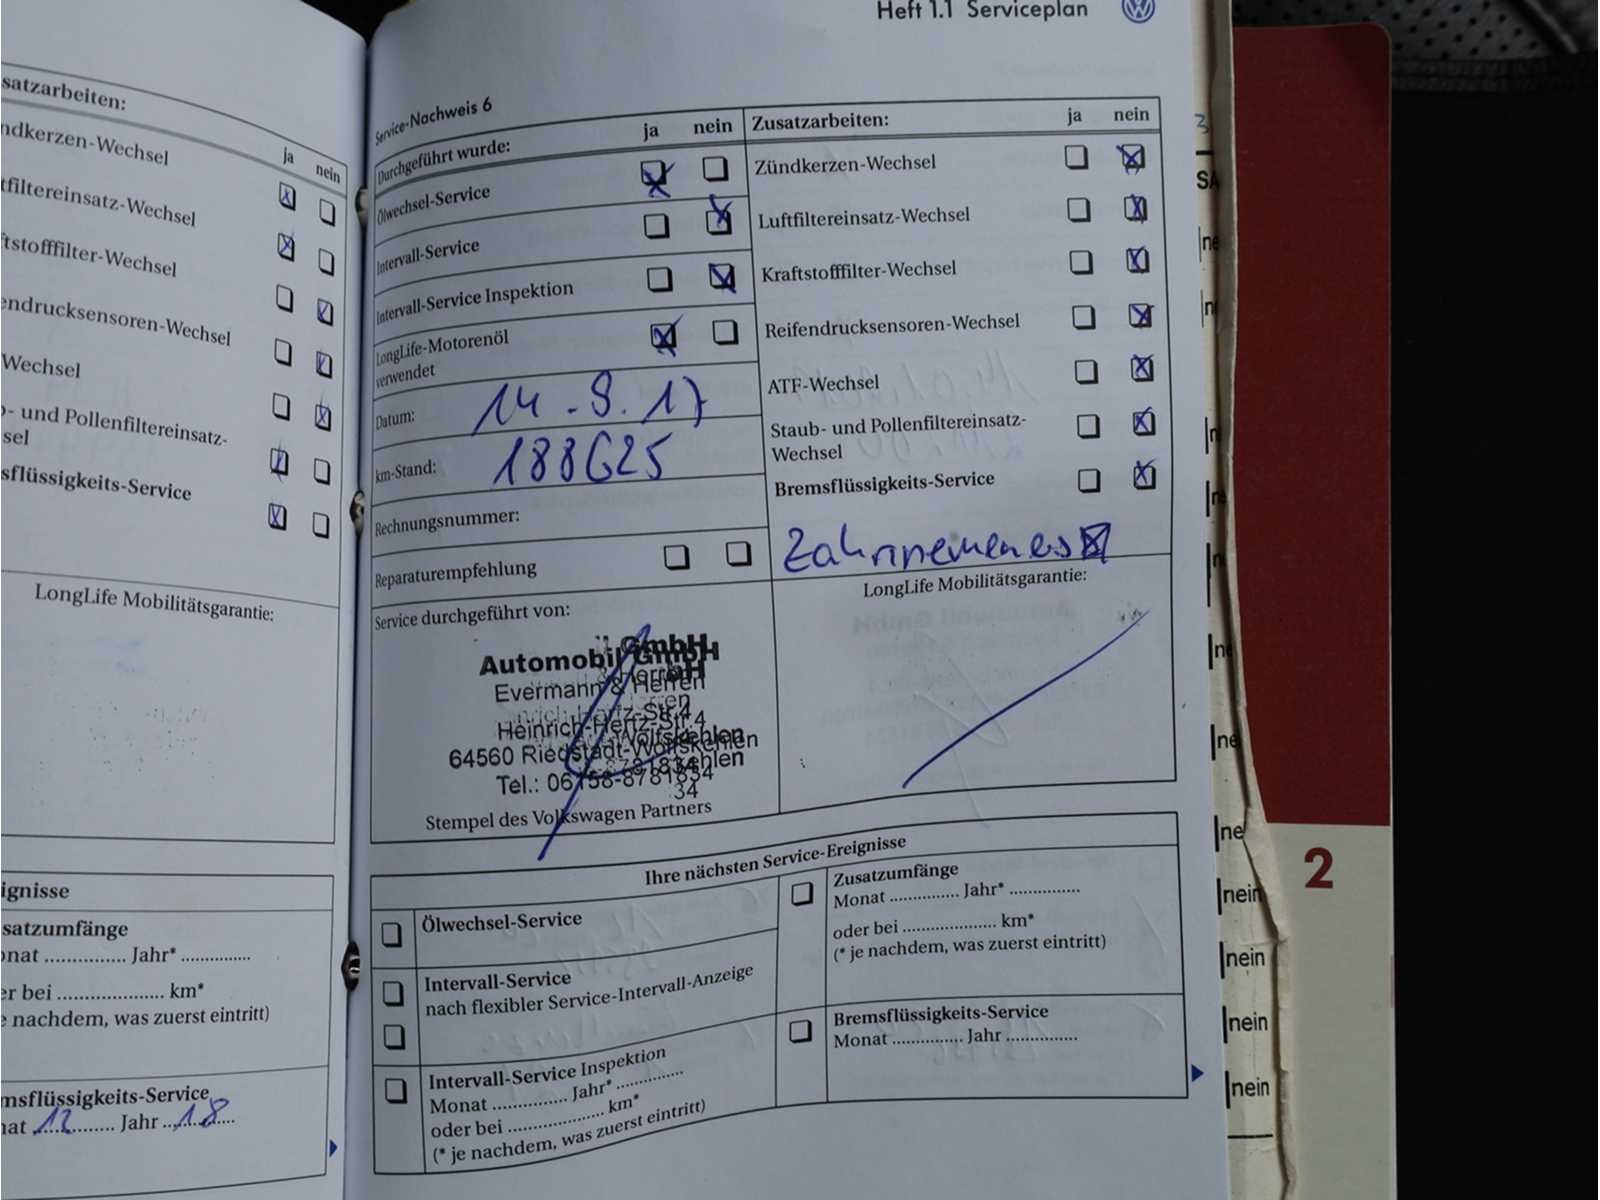 Heft 1.1 Serviceplan
satzarbeiten:
ja nein
ndkerzen-Wechsel
tfiltereinsatz-Wechsel
ftstofffilter-Wechsel
endrucksensoren-Wechsel
Wechsel
b- und Pollenfiltereinsatz-
sel
sflüssigkeits-Service
LongLife Mobilitätsgarantie:
ignisse
satzumfänge
onat ............... Jahr* .............
er bei .................... km*
e nachdem, was zuerst eintritt)
msflüssigkeits-Service
nat 12 Jahr 18
Service-Nachweis 6
Durchgeführt wurde: ja nein
Ölwechsel-Service
Intervall-Service
Intervall-Service Inspektion
LongLife-Motorenöl
verwendet
Datum: 14.9.17
km-Stand: 188625
Rechnungsnummer:
Reparaturempfehlung
Service durchgeführt von:
Automobil GmbH
Evermann & Herren
Heinrich-Hertz-Str.4
64560 Riedstadt-Wolfskehlen
Tel.: 06158-8781834
Stempel des Volkswagen Partners
Zusatzarbeiten: ja nein
Zündkerzen-Wechsel
Luftfiltereinsatz-Wechsel
Kraftstofffilter-Wechsel
Reifendrucksensoren-Wechsel
ATF-Wechsel
Staub- und Pollenfiltereinsatz-
Wechsel
Bremsflüssigkeits-Service
LongLife Mobilitätsgarantie:
Ihre nächsten Service-Ereignisse
Ölwechsel-Service
Intervall-Service
nach flexibler Service-Intervall-Anzeige
Intervall-Service Inspektion
Monat ............... Jahr* .............
oder bei .................... km*
(* je nachdem, was zuerst eintritt)
Zusatzumfänge
Monat ............... Jahr* ...............
oder bei .................... km*
(* je nachdem, was zuerst eintritt)
Bremsflüssigkeits-Service
Monat ............... Jahr ...............
3
SA
ne
ne
ne
nein
nein
nein
nein
2